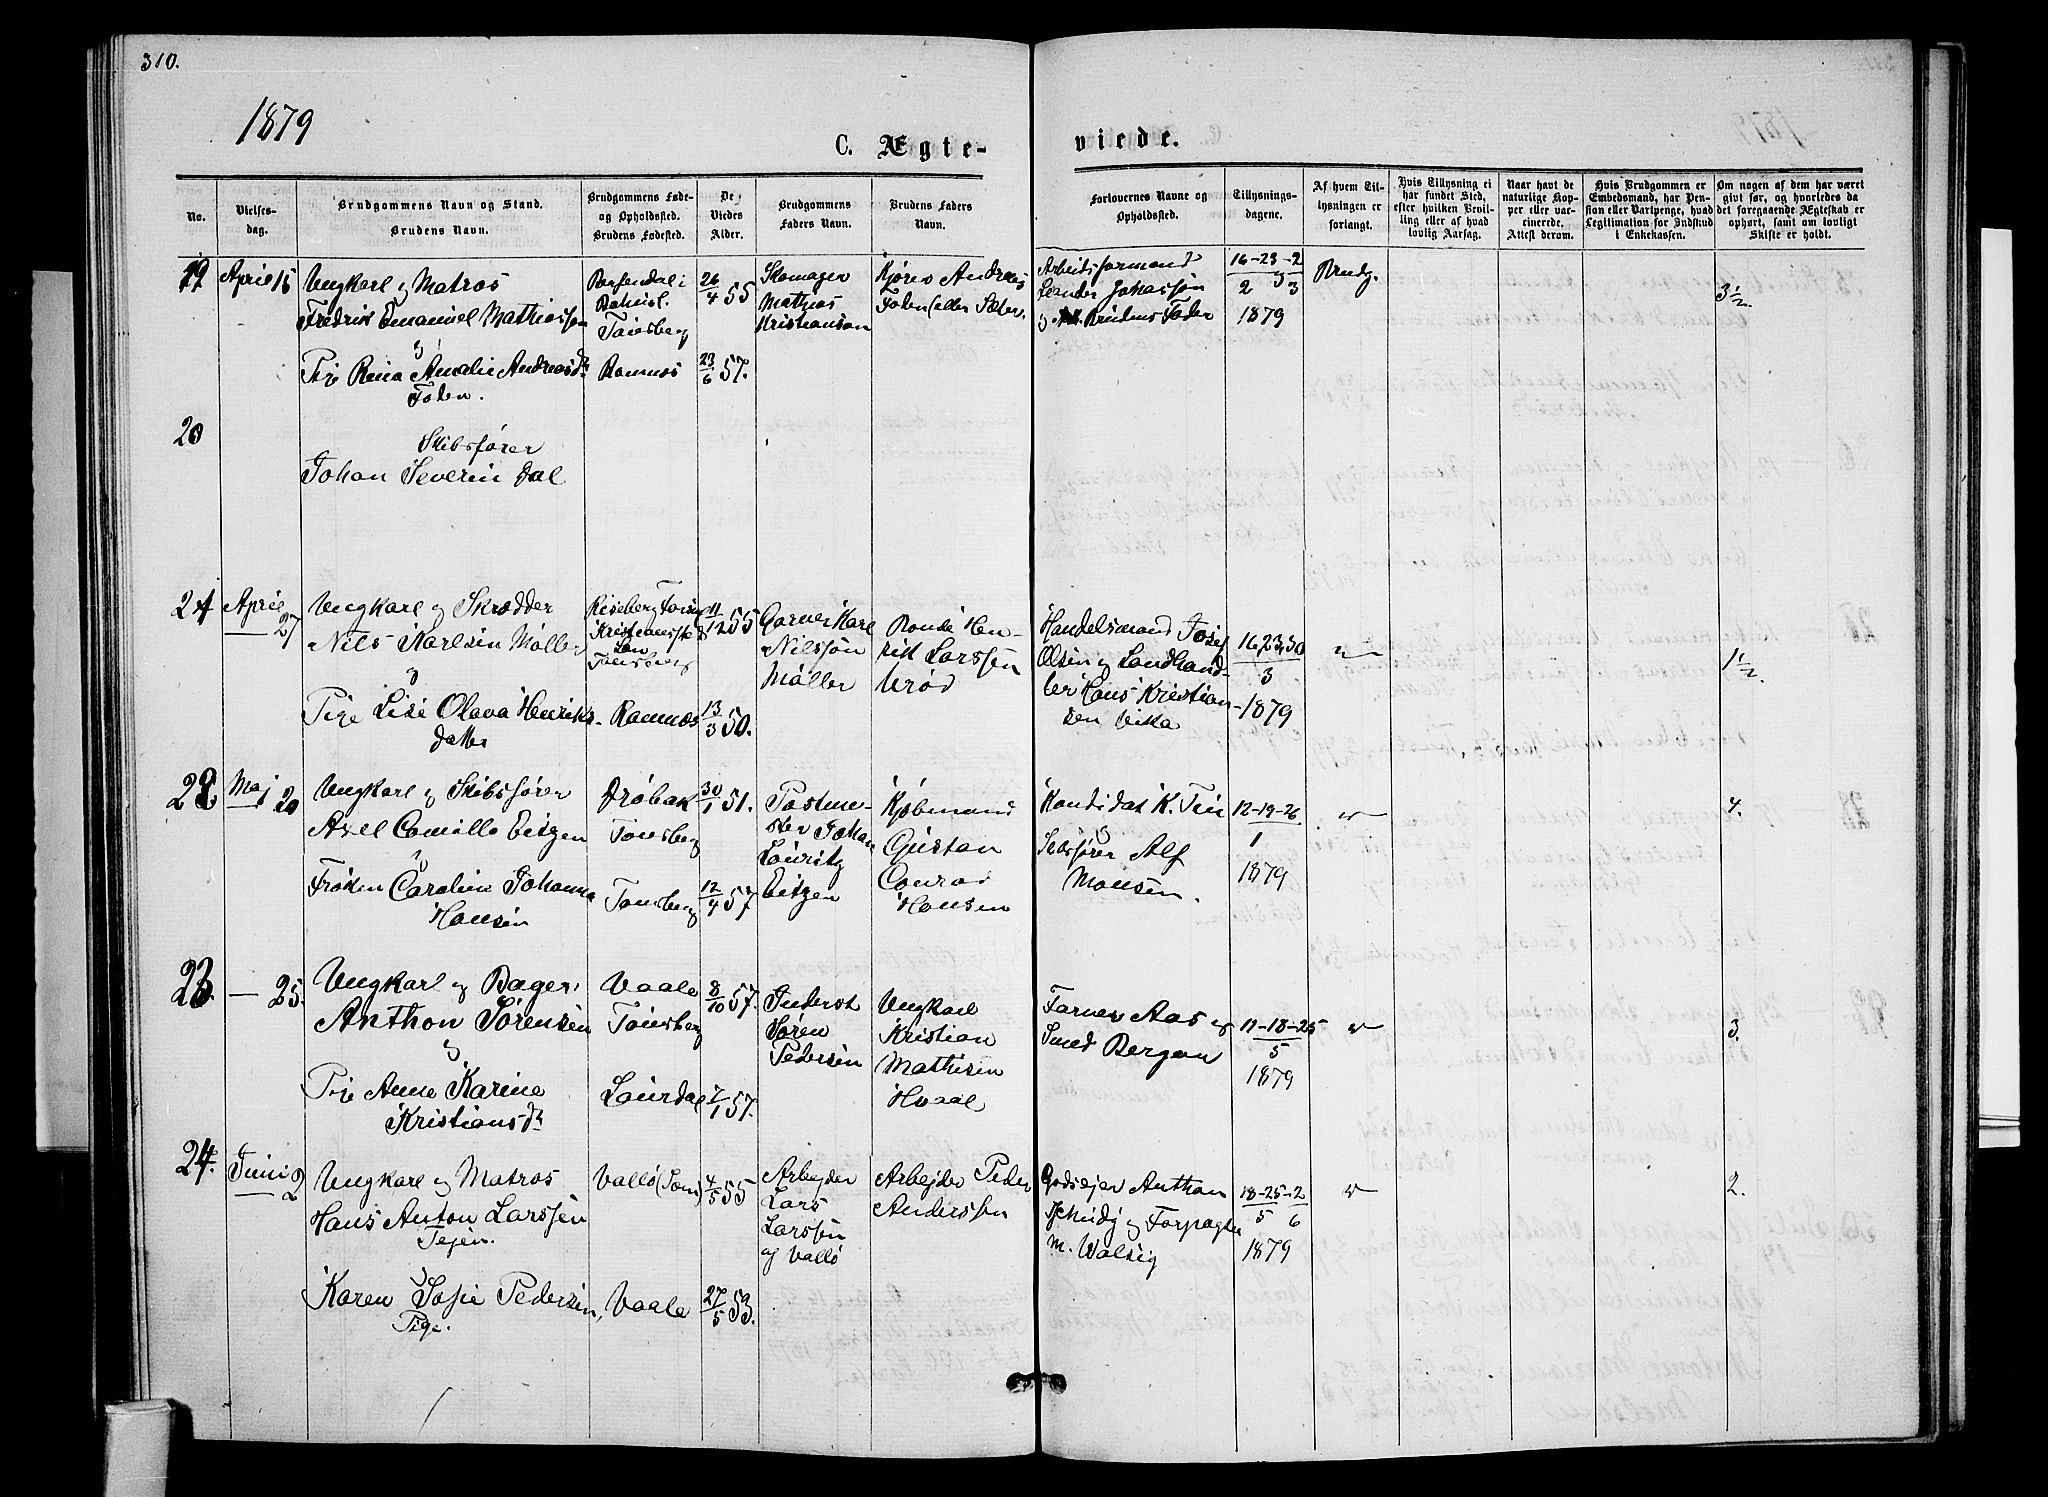 310.
1879
C. Ægte-
viede.
No.
Vielses-
dag.
Brudgommens Navn og Stand.
Brudens Navn.
Brudgommens Føde-
og Opholdssted.
Brudens Fødested.
De
Viedes
Alder.
Brudgommens
Faders Navn.
Brudens Faders
Navn.
Forlovernes Navne og
Opholdssted.
Tillysnings-
dagene.
Af hvem Til-
lysningen er
forlangt.
Hvis Tillysning ei
har fundet Sted,
efter hvilken Bevil-
ling eller af hvad
lovlig Aarsag.
Naar havt de
naturlige Kop-
per eller vac-
cinerede.
Attest derom.
Hvis Brudgommen er
Embedsmand, har Pen-
sion eller Vartpenge, hvad
Legitimation for Indskud
i Enkekassen.
Om nogen af dem har været
givt før, og hvorledes da
det foregaaende Ægteskab er
ophørt, samt om lovligt
Skifte er holdt.
19 April 15
Ungkarl og Matros
Fredrik Emanuel Mathiassen
og
Pige Rina Amalie Andreasdr
Foden.
Bahusl.
Tønsberg
Ramnes
26/4 55
23/6 57.
Skomager
Mathias
Kristiansen
Kjører Andreas
Foden (eller Sæter)
Arbeidsformand
Leander Johassøn
og Brudens Fader
16-23-2
2 3
1879
Brudg.
3 1/2.
20
Skibsfører
Johan Severin Dal
21 April 27
Ungkarl og Skrædder
Nils Karlsen Møller
og
Pige Lise Olava Henriks-
datter
Kristiansted
Län
Tønsberg
Ramnes
11/12 55
13/3 50.
Garver Karl
Nilssøn
Møller
Bonde Hen-
rik Larssen
Urød
Handelsmand Josef
Olsen og Landhand-
ler Hans Kristian-
sen Vika
16, 23, 30
3
1879
1 1/2.
22 Maj 20
Ungkarl og Skibsfører
Axel Camillo Eitzen
og
Frøken Caroline Johanna
Hansen
Drøbak
Tønsberg
Tønsberg
30/1 51.
12/4 57
Postme-
ster Johan
Lauritz
Eitzen
Kjøbmand
Gustav
Conrad
Hansen
Kandidat K. Fin
og
Skibsfører Alf
Monsen.
12-19-26
1
1879
4.
23. — 25.
Ungkarl og Bager
Anthon Sørensen
og
Pige Anne Karine
Kristiansdr
Vaale
Tønsberg
Laurdal
8/10 57.
7/1 57.
Inderst
Søren
Pedersen
Ungkarl
Kristian
Mathisen
Hvaal
Farver Aas og
Smed Bergan
11-18-25
5
1879
3.
24. Juni 2
Ungkarl og Matros
Hans Anton Larssen
Tejen.
og
Karen Sofie Pedersen,
Pige.
Vallø (Sem)
Vaale
4/5 55
27/5 53.
Arbejder
Lars
Larssen
af Vallø
Arbejder Peder
Anderssen
Godsejer Anthon
Schmidt og Forpagter
M. Walseig
18-25-2
5 6
1879
2.